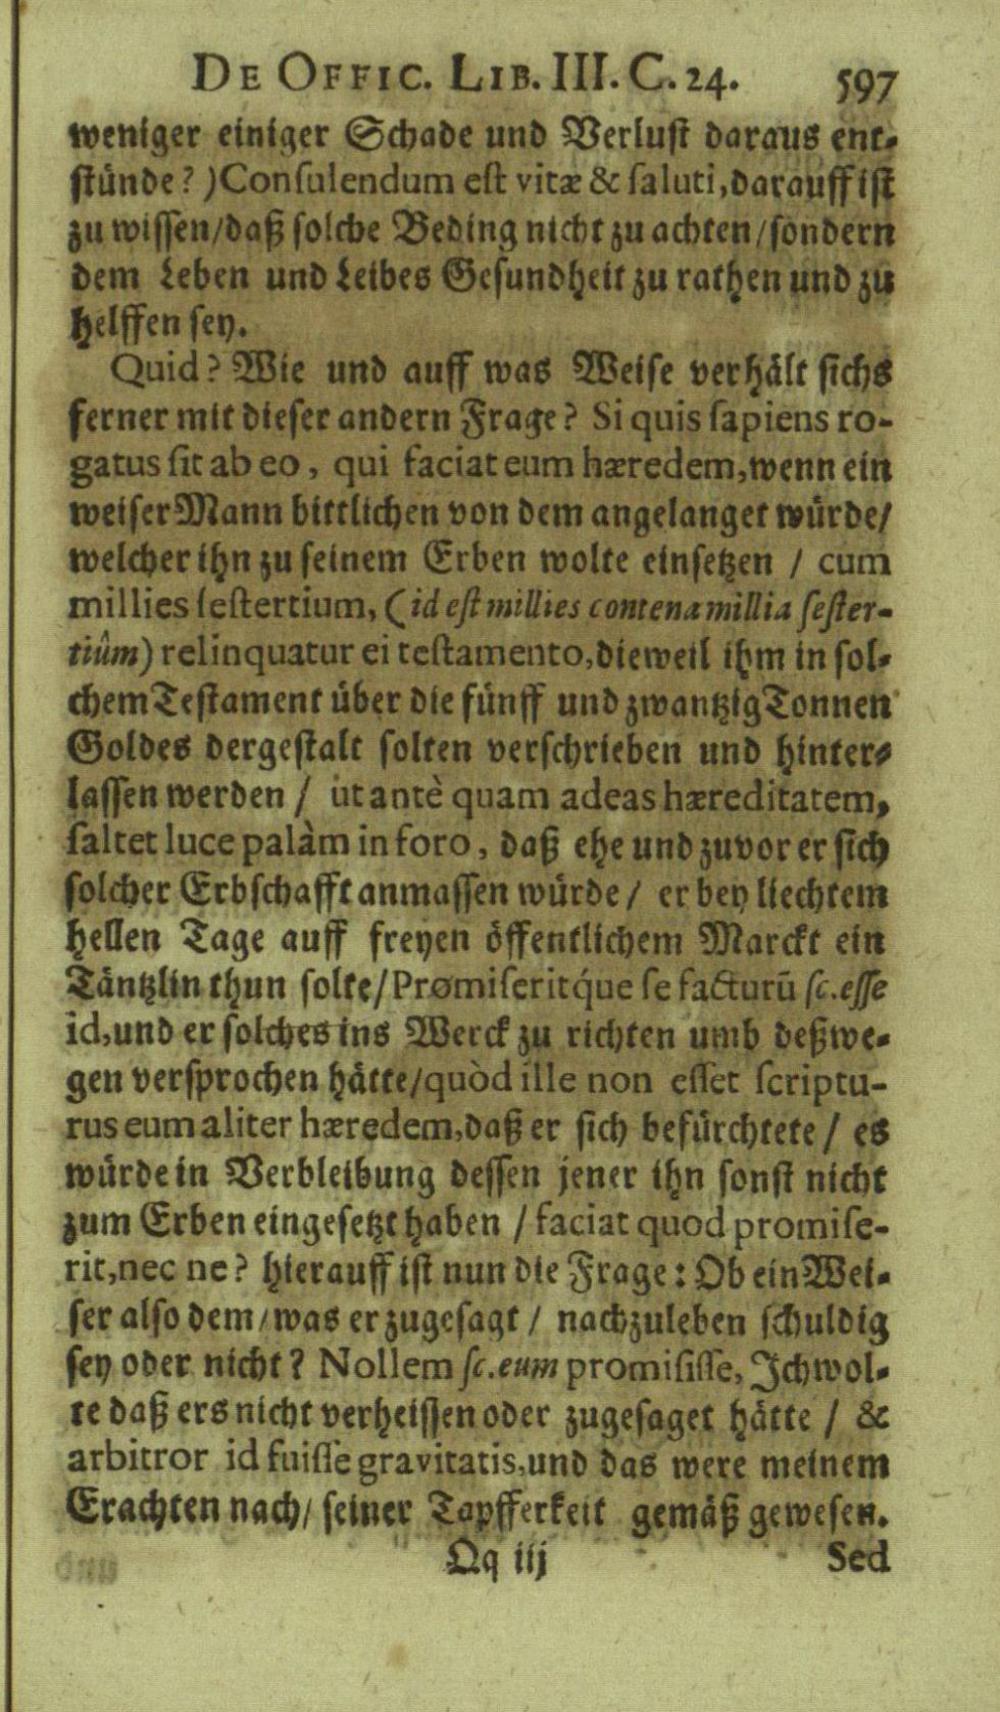 DE OFFIC. LIB. III. C. 24. 597
weniger einiger Schade und Verlust daraus ent-
stünde? ) Consulendum est vitæ & saluti, darauff ist
zu wissen / daß solche Beding nicht zu achten / sondern
dem Leben und Leibes Gesundheit zu rathen und zu
helffen sey.
Quid? Wie und auff was Weise verhält sichs
ferner mit dieser andern Frage? Si quis sapiens ro-
gatus sit ab eo, qui faciat eum hæredem, wenn ein
weiser Mann bittlichen von dem angelanget würde /
welcher ihn zu seinem Erben wolte einsetzen / cum
millies sestertium, (id est millies contena millia sester-
tiûm) relinquatur ei testamento, dieweil ihm in sol-
chem Testament über die fünff und zwantzig Tonnen
Goldes dergestalt solten verschrieben und hinter-
lassen werden / ut antè quam adeas hæreditatem,
saltet luce palàm in foro, daß ehe und zuvor er sich
solcher Erbschafft anmassen würde / er bey liechtem
hellen Tage auff freyen öffentlichem Marckt ein
Täntzlin thun solte / Promiseritq́ue se facturū sc. esse
id, und er solches ins Werck zu richten umb deßwe-
gen versprochen hätte / quòd ille non esset scriptu-
rus eum aliter hæredem, daß er sich befürchtete / es
würde in Verbleibung dessen jener ihn sonst nicht
zum Erben eingesetzt haben / faciat quod promise-
rit, nec ne? hierauff ist nun die Frage: Ob ein Wei-
ser also dem / was er zugesagt / nachzuleben schuldig
sey oder nicht? Nollem sc. eum promisisse, Ich wol-
te daß ers nicht verheissen oder zugesaget hätte / &
arbitror id fuisse gravitatis, und das were meinem
Erachten nach / seiner Tapfferkeit gemäß gewesen.
Qq iij Sed